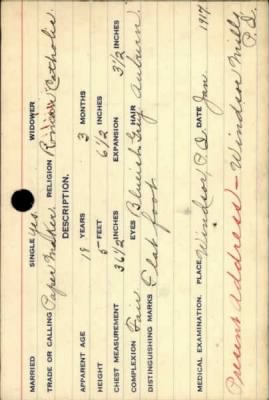 MARRIED SINGLE yes. WIDOWER
TRADE OR CALLING Paper Maker RELIGION Roman Catholic
DESCRIPTION.
APPARENT AGE 18 YEARS 3 MONTHS
HEIGHT 5 FEET 6 1/2 INCHES
CHEST MEASUREMENT 36 1/2 INCHES EXPANSION 3 1/2 INCHES
COMPLEXION Fair EYES Bluish Gry HAIR Auburn
DISTINGUISHING MARKS Flat foot
MEDICAL EXAMINATION. PLACE Windsor, P.Q. DATE Jan. 1917.
Present address - Windsor Mills
P.Q.